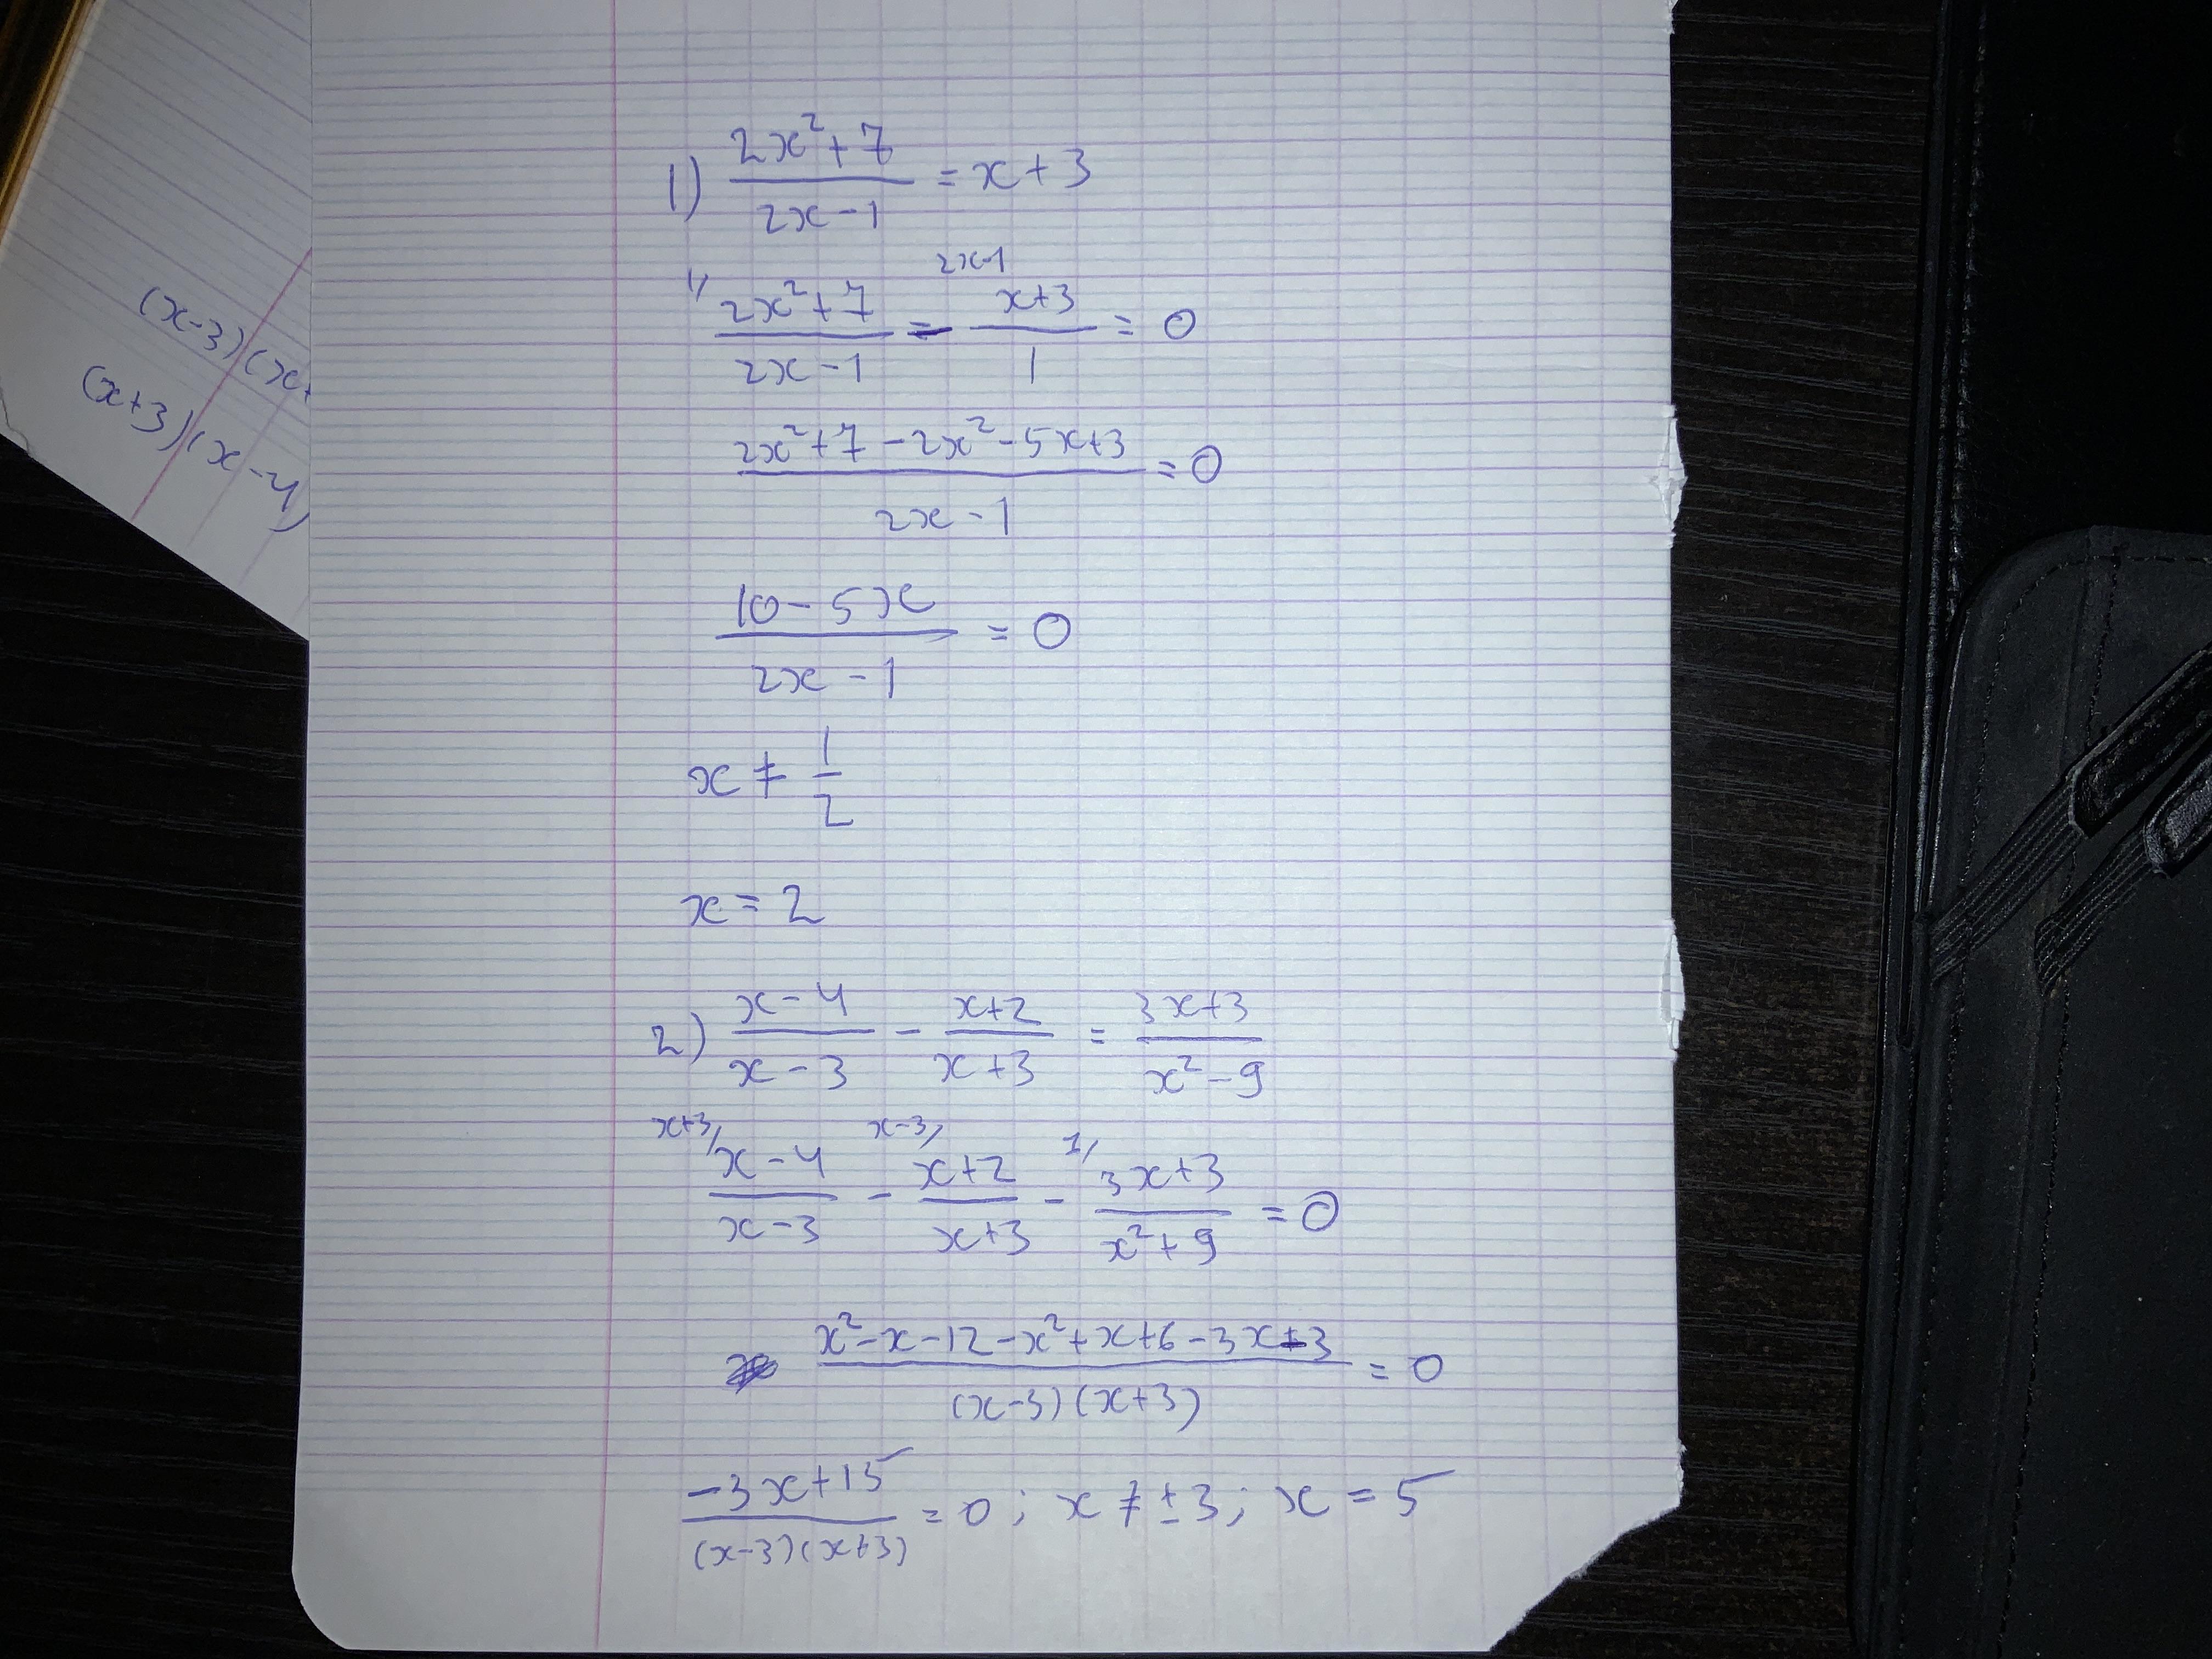 (x-3)(x+
(x+3)(x-4)
1) \frac{2x^2+7}{2x-1} = x+3
^{1/} \frac{2x^2+7}{2x-1} - ^{2x-1} \frac{x+3}{1} = 0
\frac{2x^2+7-2x^2-5x+3}{2x-1} = 0
\frac{10-5x}{2x-1} = 0
x ≠ \frac{1}{2}
x = 2
2) \frac{x-4}{x-3} - \frac{x+2}{x+3} = \frac{3x+3}{x^2-9}
^{x+3/} \frac{x-4}{x-3} - ^{x-3/} \frac{x+2}{x+3} - ^{1/} \frac{3x+3}{x^2+9} = 0
\frac{x^2-x-12-x^2+x+6-3x-3}{(x-3)(x+3)} = 0
\frac{-3x+15}{(x-3)(x+3)} = 0; x ≠ ±3; x = 5